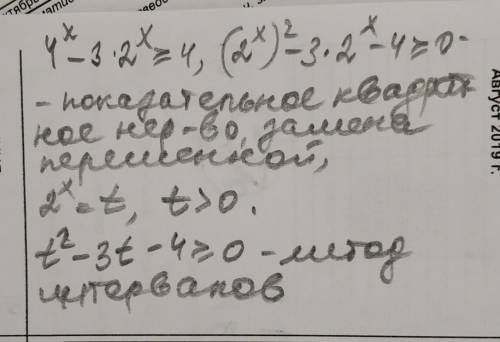 4^x - 3·2^x ≥ 4, (2^x)^2 - 3·2^x - 4 ≥ 0 -
- показательное квадрат
ное нер-во, замена
переменной,
2^x = t, t > 0.
t^2 - 3t - 4 ≥ 0 - метод
интервалов
Август 2019 г.